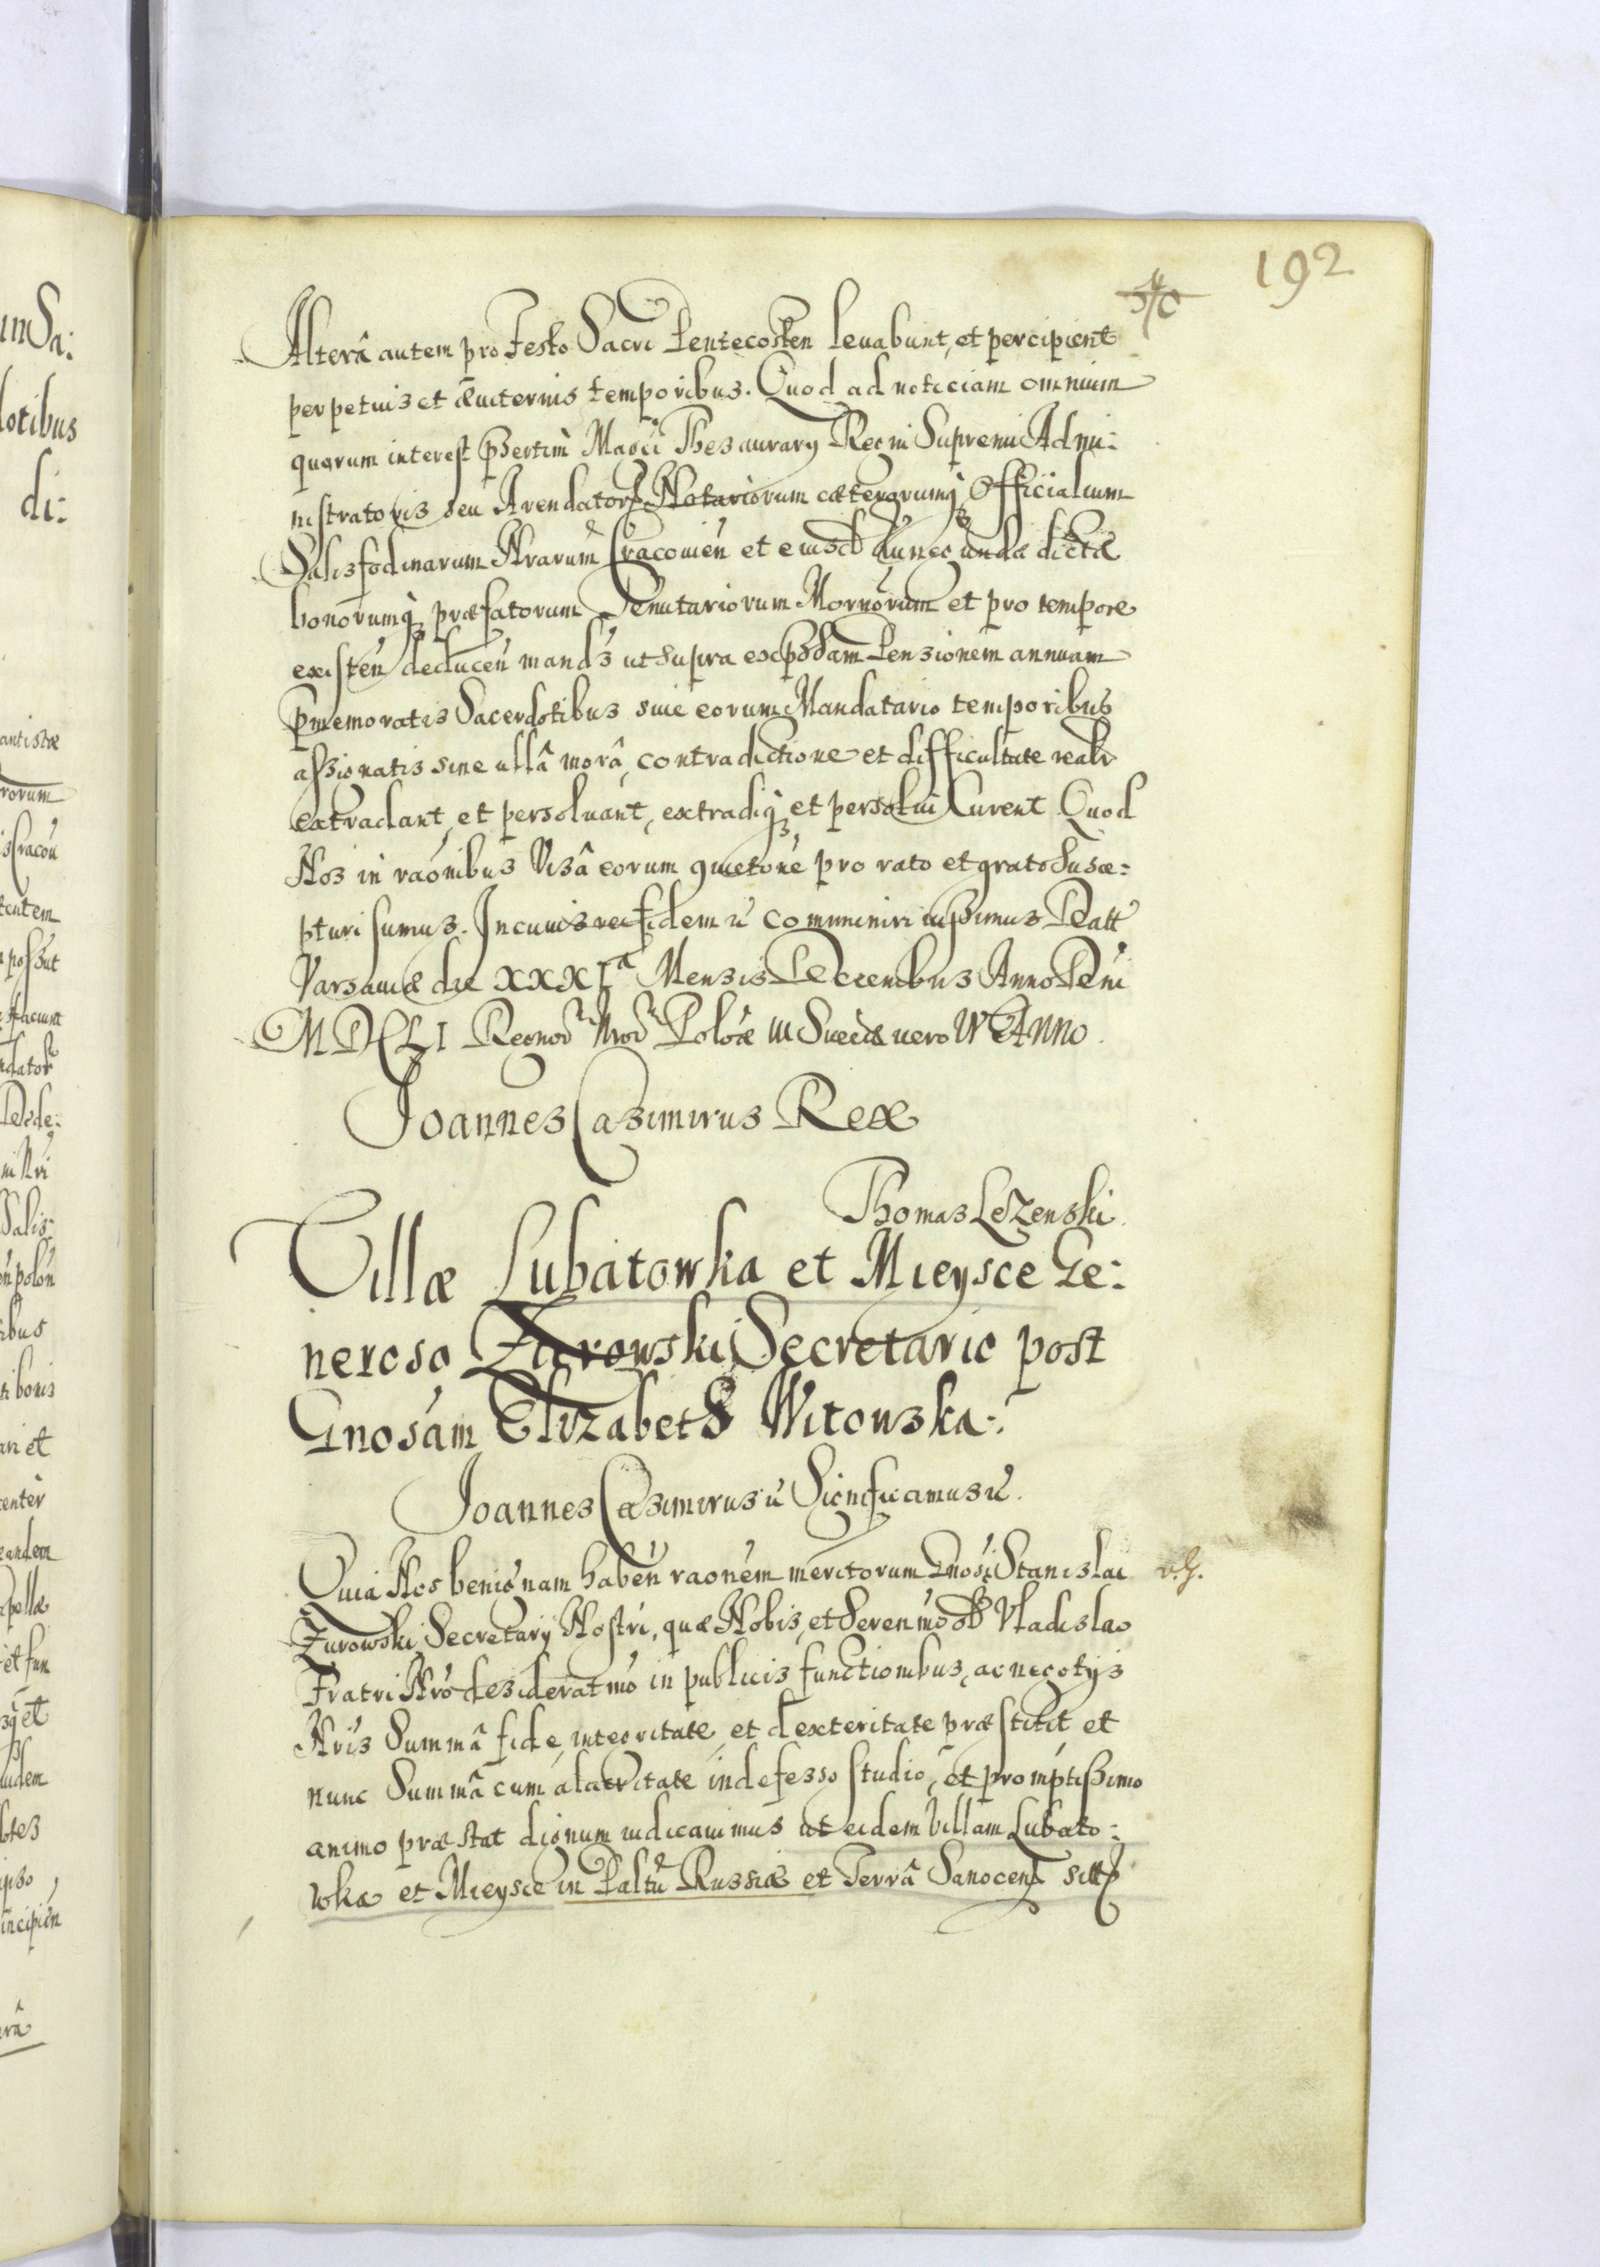 192
Alterâ autem pro Festo Sacri Pentecosten levabunt, et percipient
perpetuis et æviternis temporibus. Quod ad noticiam omnium
quorum interest pßertim Magci Thesaurary Regni Supremi Admi:
nistratoris seu Arendatorß Notariorum cæterorumq Officialium
Salisfodinarum Nrarum Cracovien et eiusd
bonorumq præfatorum Tenutariorum Modnorum et pro tempore
existen deducen mands ut supra Pensionem annuam
pmemoratis Sacerdotibus sive eorum Mandatario temporibus
assignatis sine ullâ morâ, contradictione et difficultate realr
extradant, et persolvant, extradiq et persolvi curent Quod
Nos in raonibus Visâ eorum quietone pro rato et grato susce:
pturi sumus. In cuius rei fidem communiri iussimus Datt
Varsaviæ die XXXIa Mensis Decembris Anno Dni
MDCLI Regnor Nror Poloæ III Sueciæ vero IV Anno
Joannes Casimirus Rex
Thomas Leżenski
Villæ Lubatowka et Mieysce Ge:
neroso Żurowski Secretario post
Gnosam Elizabeth Witowska:
Joannes Casimirus Significamus
Quia Nos benignam haben raonem meritorum Gnosi Stanislai
Żurowski Secretarij Nostri, quæ Nobis, et Serenmo Vladislao
Fratri Nro desideratmo in publicis functionibus, ac negotijs
Nris Summâ fide, integritate, et dexteritate præstitit, et
nunc Summâ cum alacritate indefesso studio, et promptissimo
animo præstat dignum iudicavimus ut eidem Villam Lubato:
wka et Mieysce in Paltu Russiæ et Terrâ Sanocen sitt